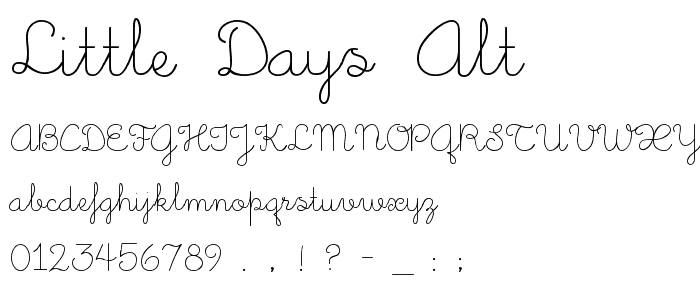 Little Days Alt
ABCDEFGHIJKLMNOPQRSTUVWXY
abcdefghijklmnopqrstuvwxyz
0123456789 . , ! ? - _ : ;